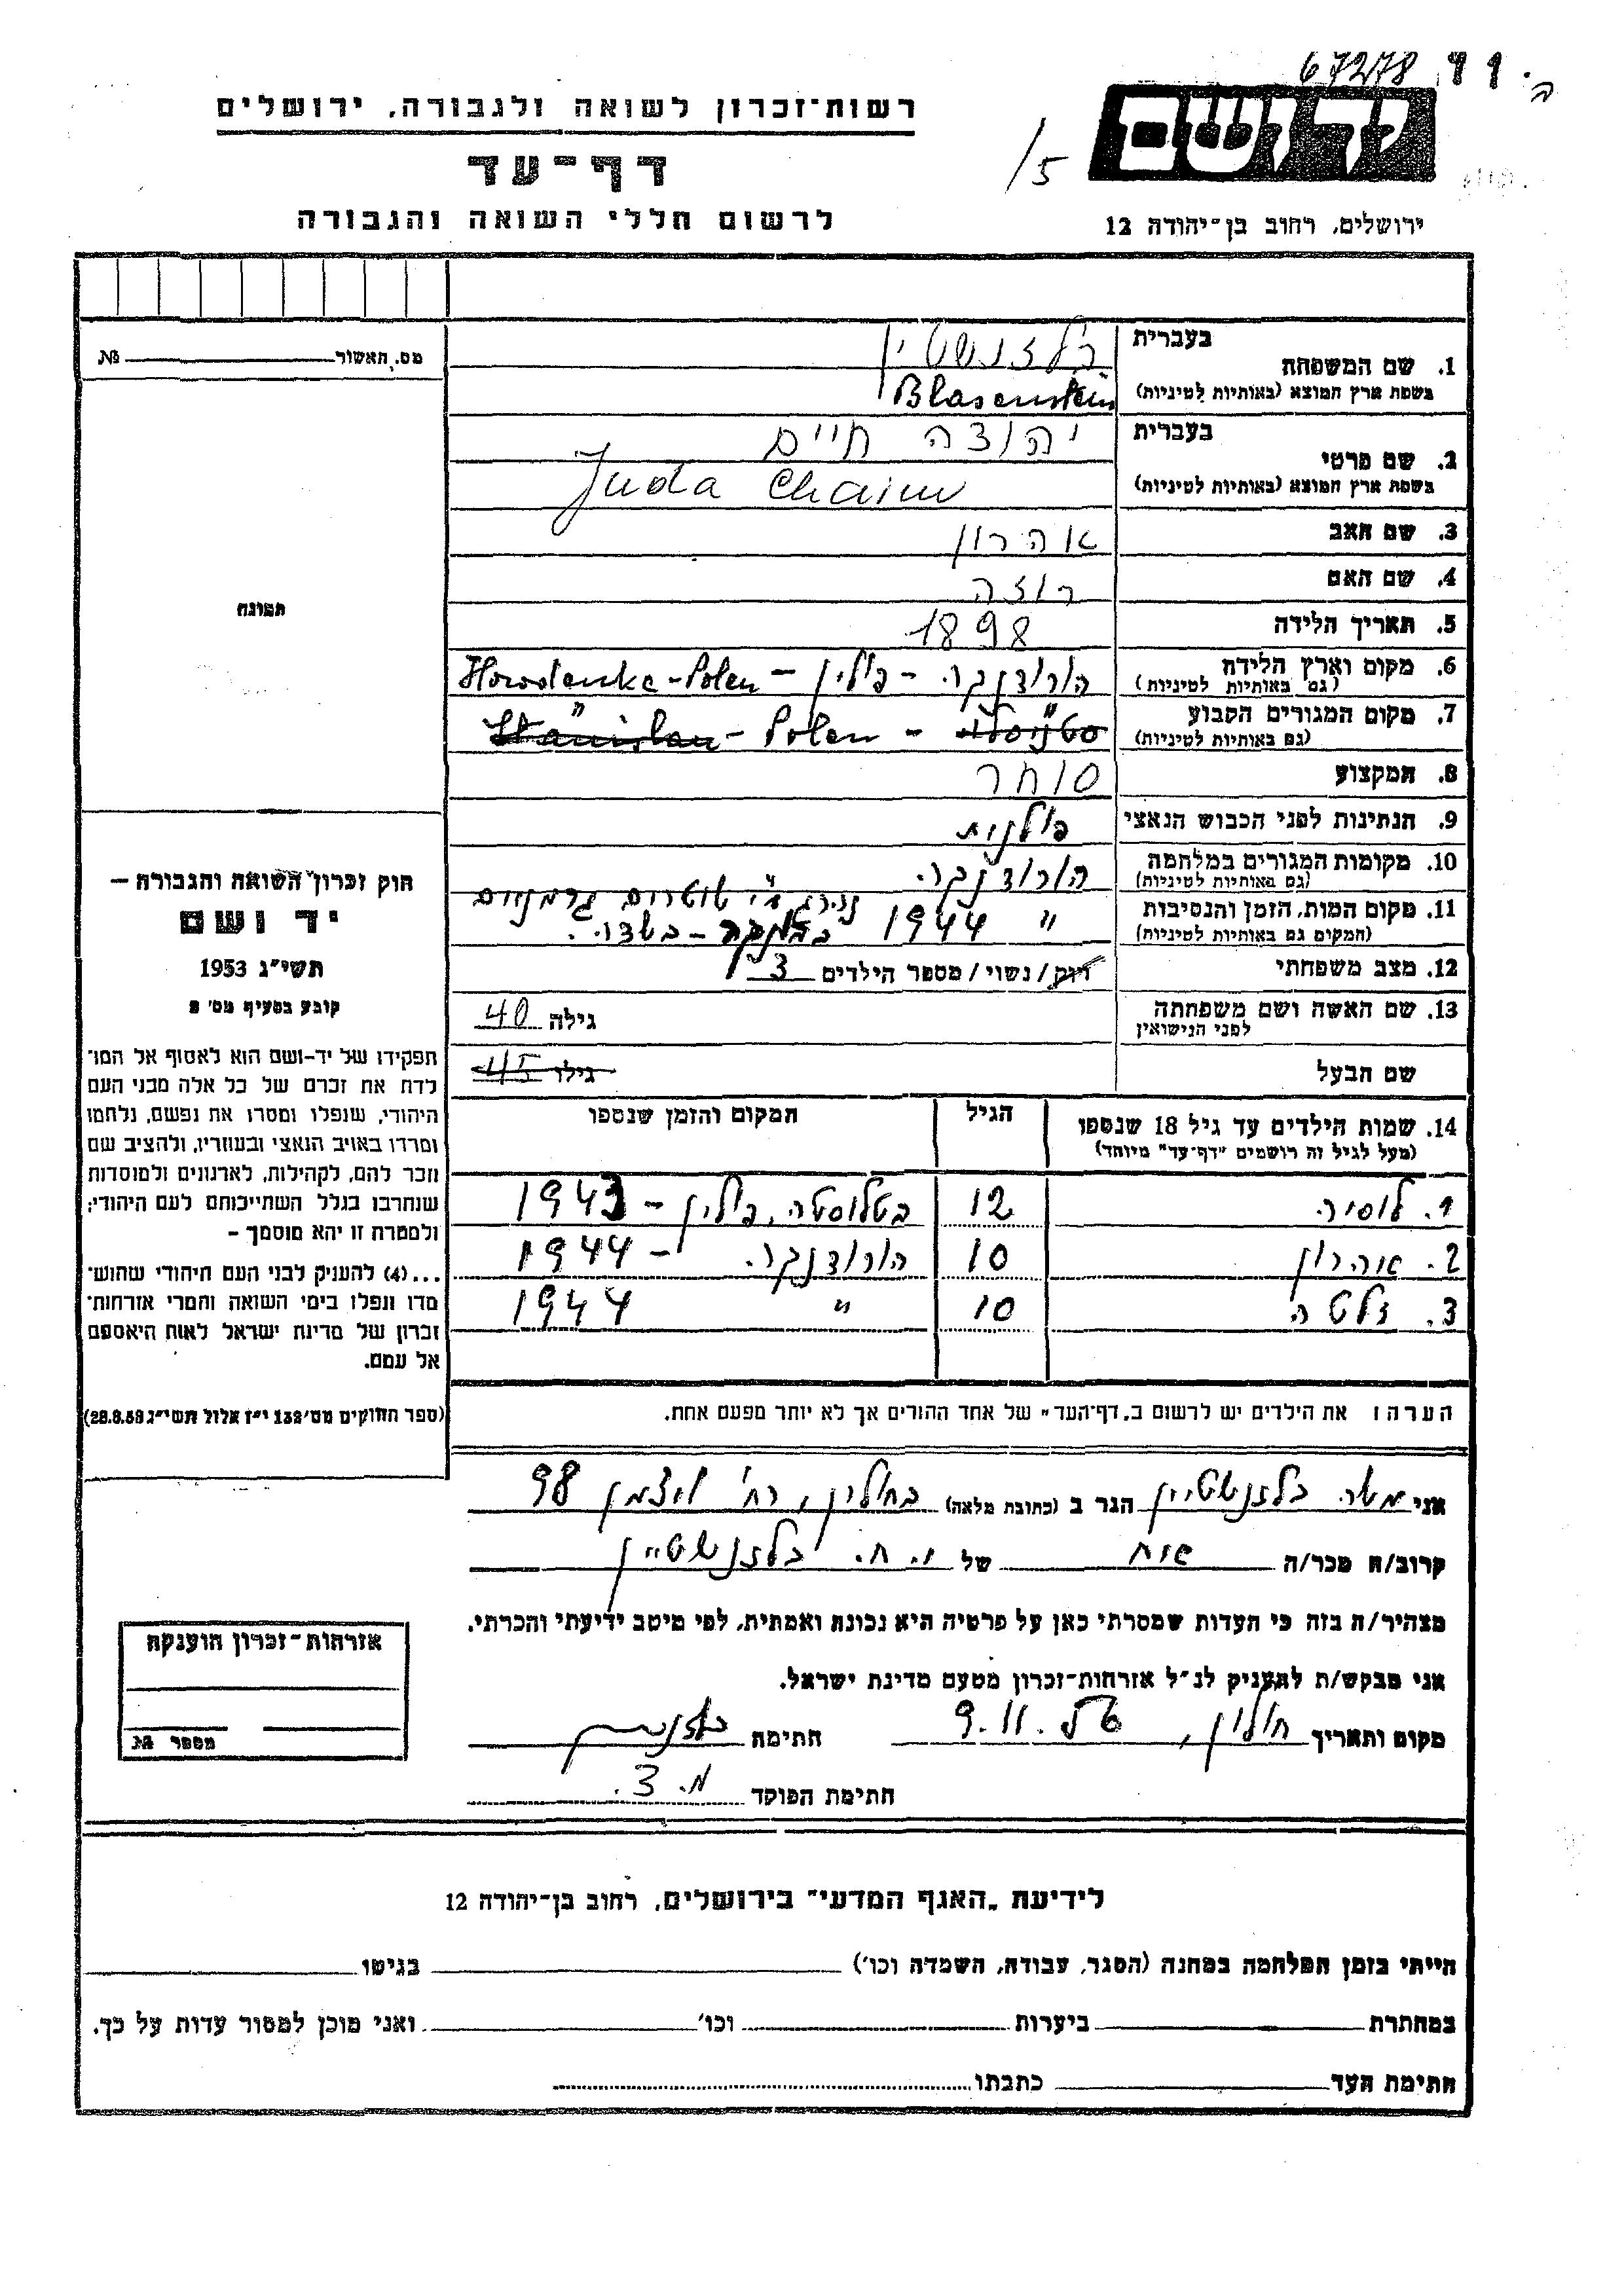 67278 99 ה.
ידושם
ירושלים, רחוב בן־יהודה 12
5/
רשות־זכרון לשואה ולגבורה, ירושלים
דף־עד
לרשום חללי השואה והגבורה
מס. האשור № 
תמונה
1. שם המשפחה
בעברית בלזנשטיין
בשפת ארץ המוצא (באותיות לטיניות) Blasenstein
2. שם פרטי
בעברית יהודה חיים
בשפת ארץ המוצא (באותיות לטיניות) Juda Chaim
3. שם האב אהרון
4. שם האם רוזה
5. תאריך הלידה 1898
6. מקום וארץ הלידה הורודנקה - פולין - Horodenka - Polen
(גם באותיות לטיניות)
7. מקום המגורים הקבוע סטניסלו " - Polen - Stanislau "
(גם באותיות לטיניות)
8. המקצוע סוחר
9. הנתינות לפני הכבוש הנאצי פולנית
10. מקומות המגורים במלחמה הורודנקה.
(גם באותיות לטיניות)
11. מקום המות, הזמן והנסיבות נהרג ע"י שוטרים גרמניים
(המקום גם באותיות לטיניות) " 1944 - בשדה.
12. מצב משפחתי רווק / נשוי / מספר הילדים 3
13. שם האשה ושם משפחתה גילה 40
לפני הנישואין
שם הבעל גילו 45
14. שמות הילדים עד גיל 18 שנספו הגיל המקום והזמן שנספו
(מעל לגיל זה רושמים "דף־עד" מיוחד)
1. לוסיה 12 בטלוסטה, פולין - 1943
2. אהרון 10 הורודנקה. - 1944
3. זלטה 10 " 1944
הערה: את הילדים יש לרשום ב„דף־העד" של אחד ההורים אך לא יותר מפעם אחת.
חוק זכרון השואה והגבורה —
יד ושם
תשי״ג 1953
קובע בסעיף מס׳ 2
תפקידו של יד־ושם הוא לאסוף אל המו־
לדת את זכרם של כל אלה מבני העם
היהודי, שנפלו ומסרו את נפשם, נלחמו
ומרדו באויב הנאצי ובעוזריו, ולהציב שם
וזכר להם, לקהילות, לארגונים ולמוסדות
שנחרבו בגלל השתייכותם לעם היהודי;
ולמטרה זו יהא מוסמך —
...(4) להעניק לבני העם היהודי שהוש־
מדו ונפלו בימי השואה והמרי אזרחות־
זכרון של מדינת ישראל לאות היאספם
אל עמם.
(ספר החוקים מס׳ 132 י״ז אלול תשי״ג 28.8.53)
אני משה בלזנשטיין הגר ב (כתובת מלאה) בחולון, רח' ויצמן 98
קרוב/ה מכר/ה אח של י. ח. בלזנשטיין
מצהיר/ה בזה כי העדות שמסרתי כאן על פרטיה היא נכונה ואמתית, לפי מיטב ידיעתי והכרתי.
אני מבקש/ת להעניק לנ״ל אזרחות־זכרון מטעם מדינת ישראל.
מקום ותאריך חולון, 9.11. חתימה
חתימת הפוקד מ. 3.
אזרחות־זכרון הוענקה
מספר №
לידיעת „האגף המדעי" בירושלים, רחוב בן־יהודה 12
הייתי בזמן המלחמה במחנה (הסגר, עבודה, השמדה וכו׳) בגיטו
במחתרת ביערות וכו׳ ואני מוכן למסור עדות על כך.
חתימת העד כתבתו